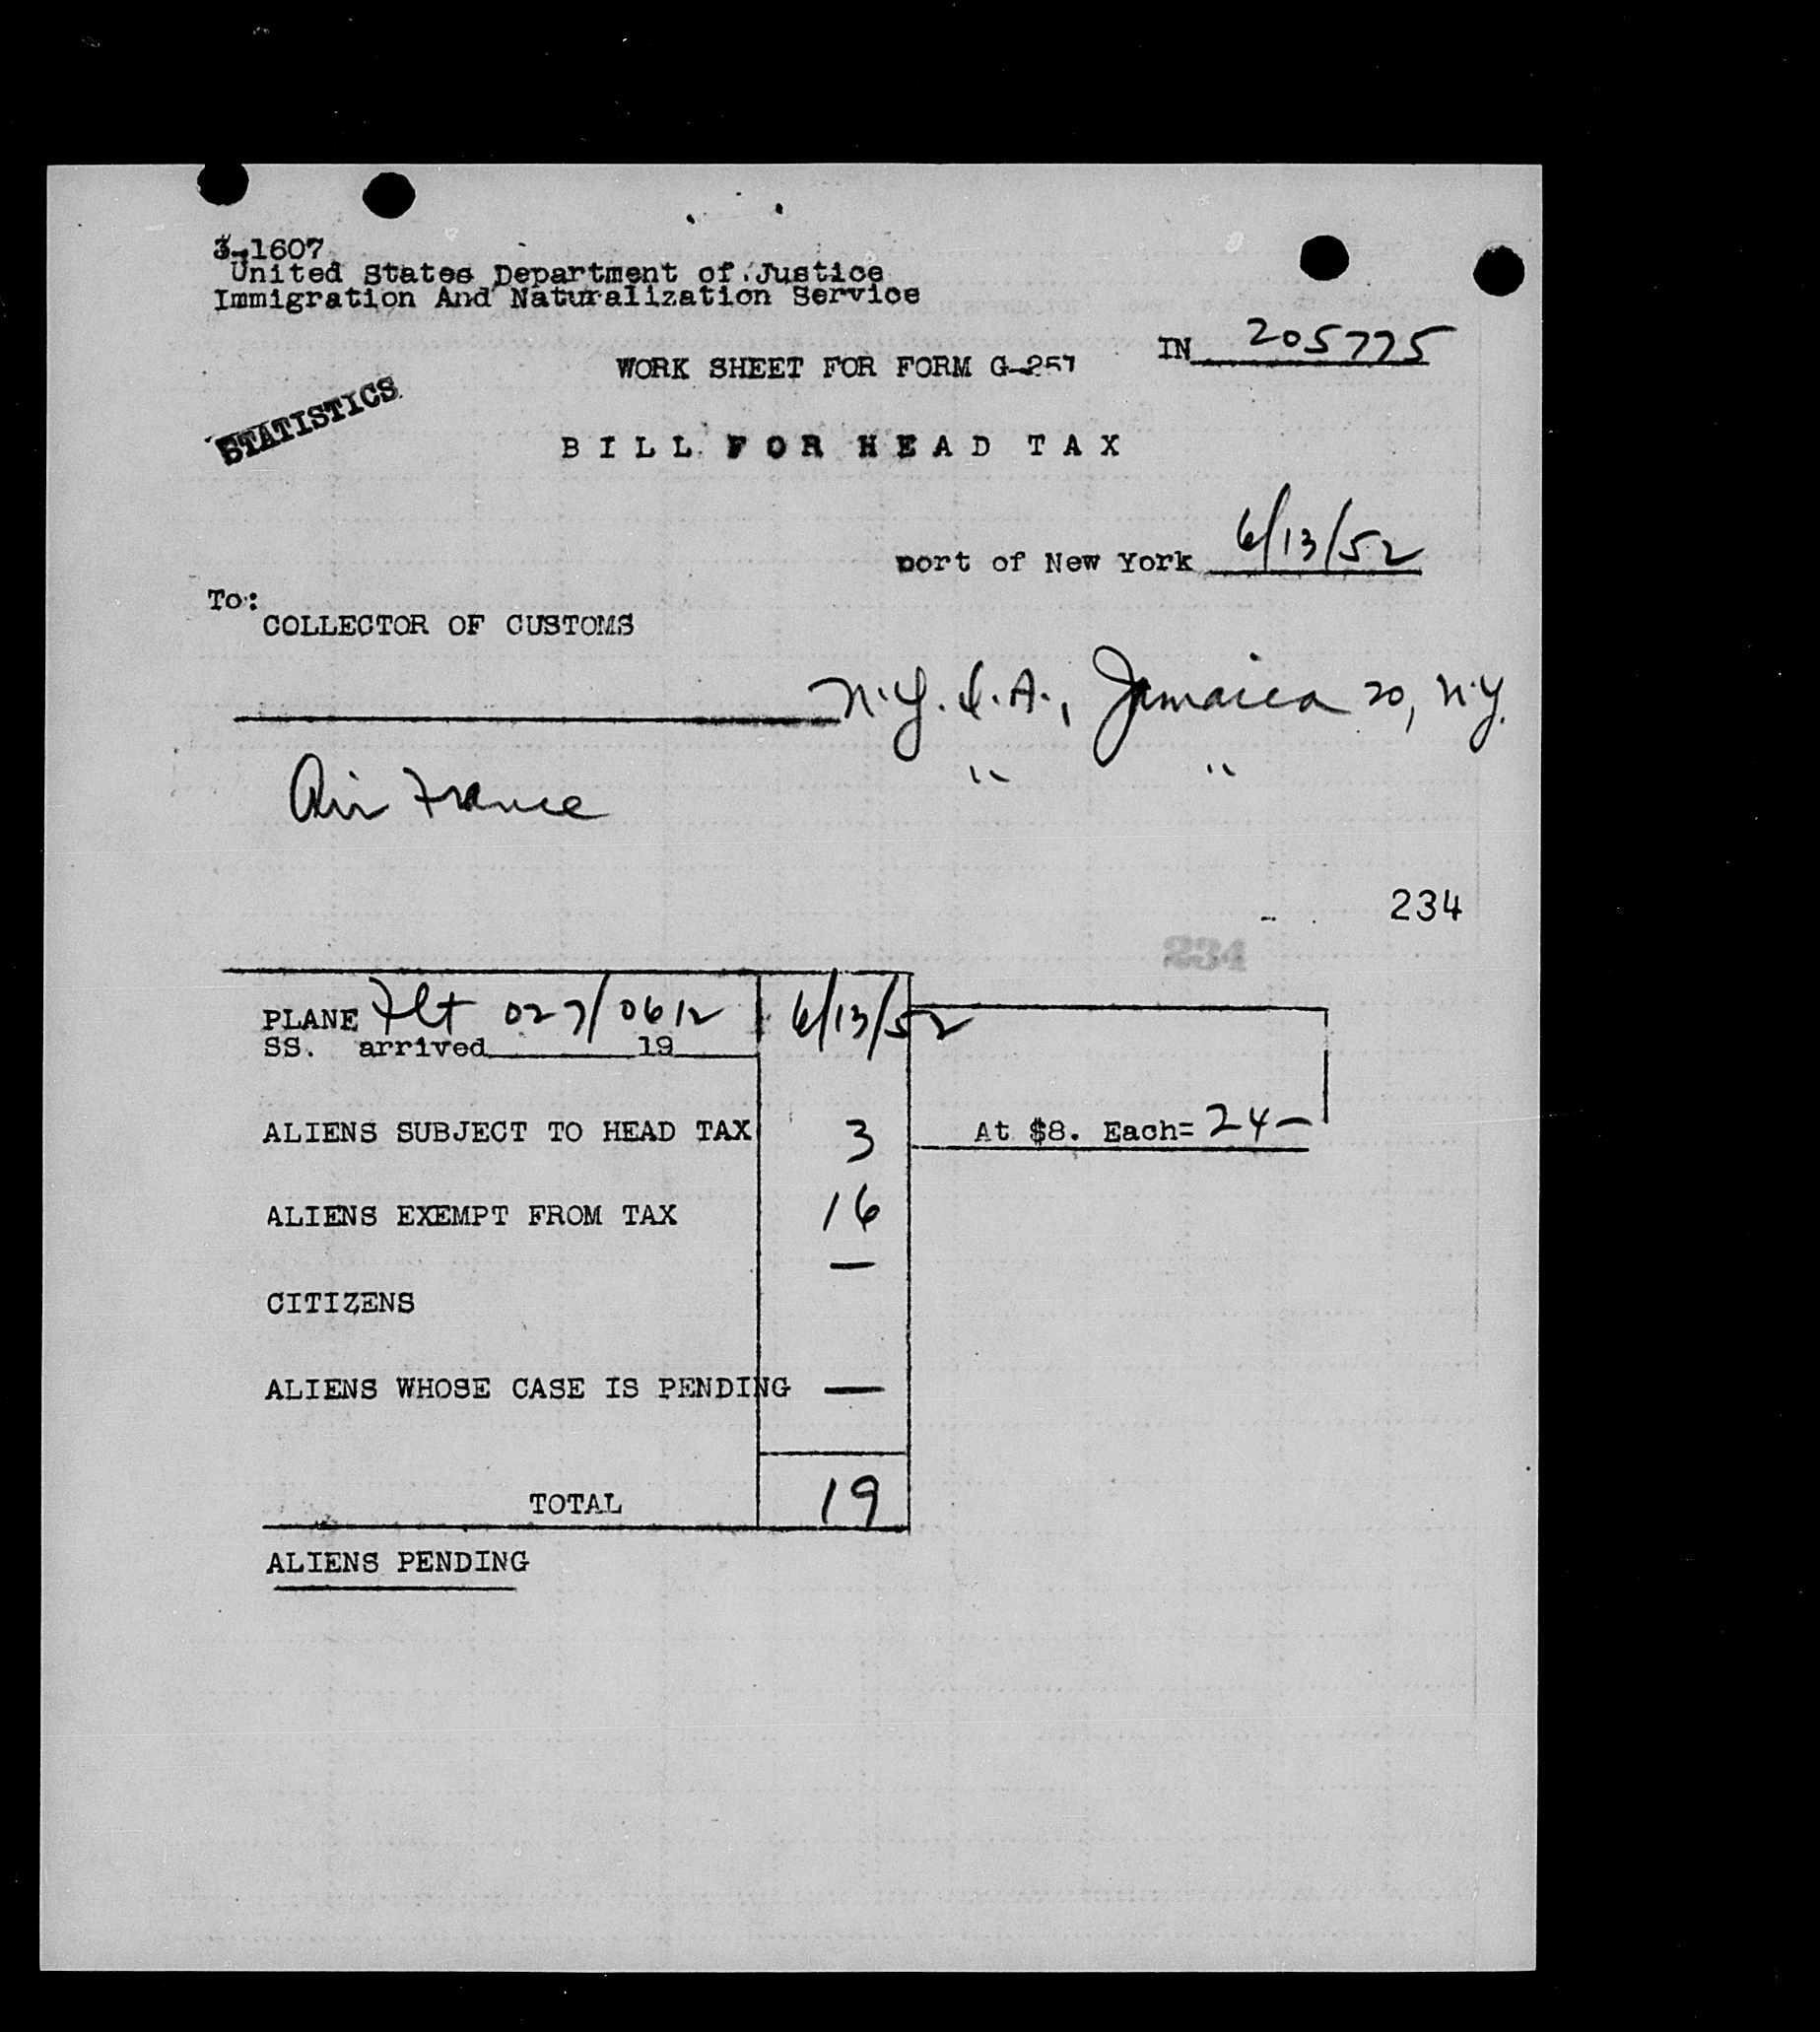 3-1607
United States Department of Justice
Immigration And Naturalization Service
IN 205775
WORK SHEET FOR FORM G-257
STATISTICS
BILL FOR HEAD TAX
port of New York 6/13/52
To:
COLLECTOR OF CUSTOMS
N.Y.I.A., Jamaica 20, N.Y.
Air France " "
234
234
PLANE Flt 027/0612 6/13/52
SS. arrived 19
ALIENS SUBJECT TO HEAD TAX 3 At $8. Each= 24—
ALIENS EXEMPT FROM TAX 16
—
CITIZENS
ALIENS WHOSE CASE IS PENDING —
TOTAL 19
ALIENS PENDING